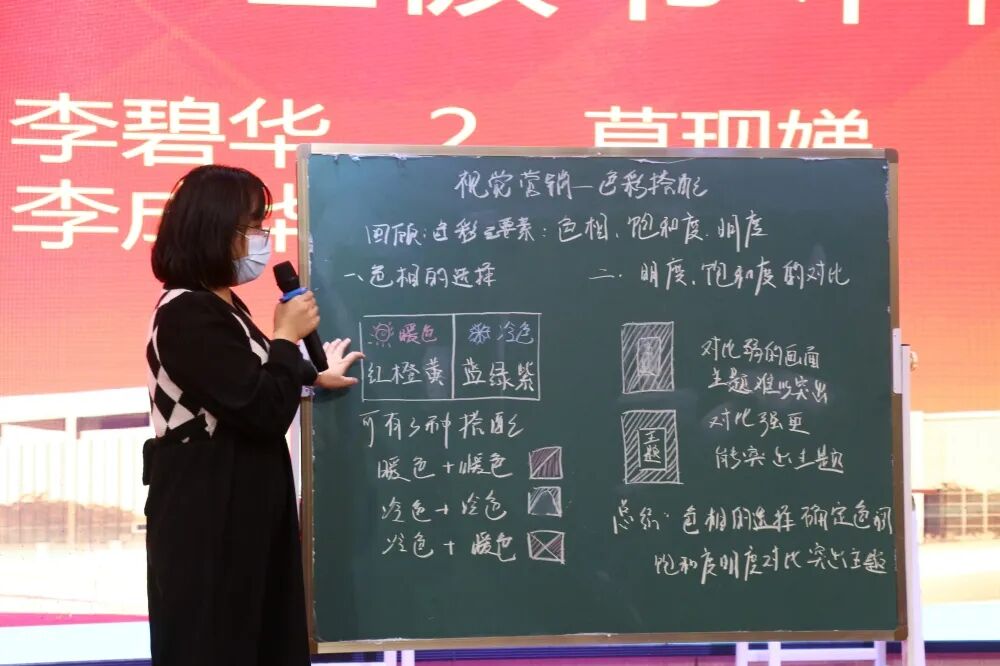 李碧华 2 莫现娣
李
视觉营销—色彩搭配
回顾:色彩三要素:色相、饱和度、明度
一、色相的选择
暖色 冷色
红橙黄 蓝绿紫
可有3种搭配
暖色+暖色
冷色+冷色
冷色+暖色
二、明度、饱和度的对比
主题
对比弱的画面
主题难以突出
主题
对比强更
能突出主题
总结:色相的选择确定色调
饱和度明度对比突出主题